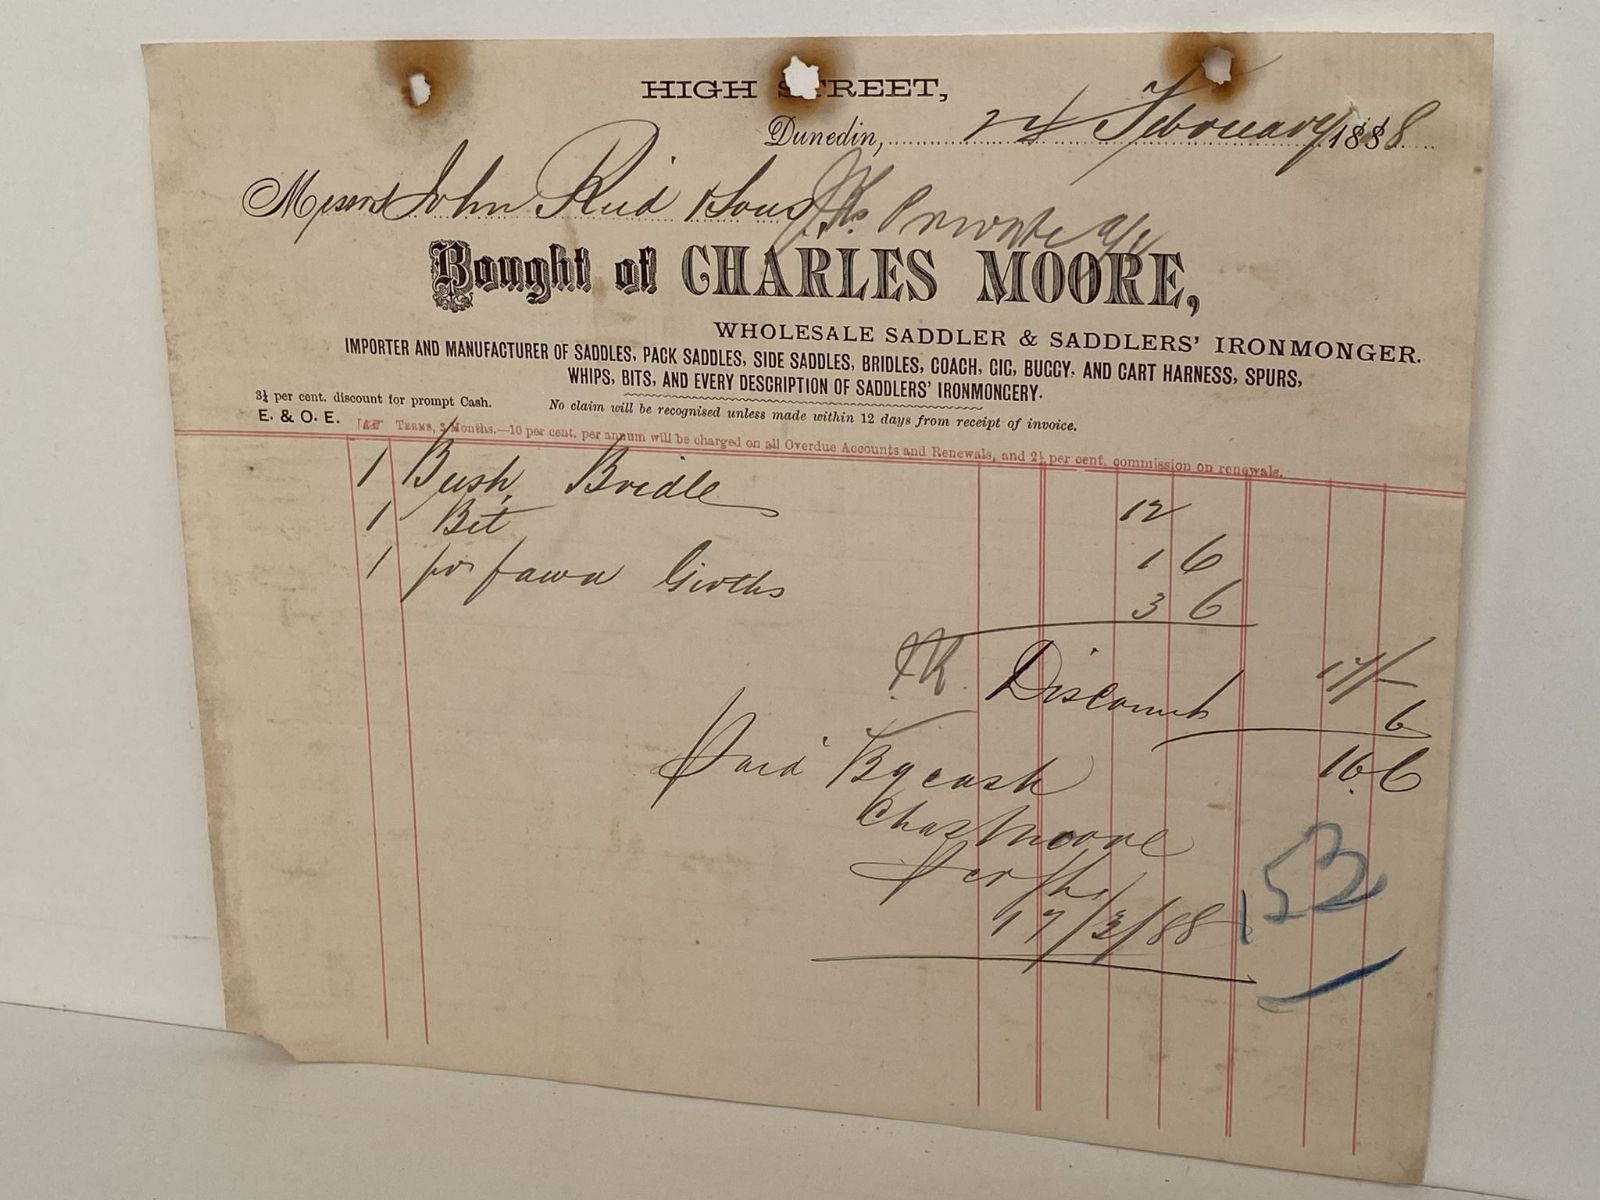 HIGH STREET,
Dunedin, 24 February 1888
Messrs John Reid & Sons J.R's Private a/c
Bought of CHARLES MOORE,
WHOLESALE SADDLER & SADDLERS' IRONMONGER.
IMPORTER AND MANUFACTURER OF SADDLES, PACK SADDLES, SIDE SADDLES, BRIDLES, COACH, GIG, BUGGY. AND CART HARNESS, SPURS,
WHIPS, BITS, AND EVERY DESCRIPTION OF SADDLERS' IRONMONGERY.
3¼ per cent. discount for prompt Cash. No claim will be recognised unless made within 12 days from receipt of invoice.
E. & O. E. TERMS, 3 Months.—10 per cent. per annum will be charged on all Overdue Accounts and Renewals, and 2½ per cent. commission on renewals.
1 Bush Bridle 12
1 Bit 1 6
1 pr fawn Girths 3 6
J.R. 17/-
Discount 6
Paid By cash 16.6
Chas Moore
Per
17/3/88
153